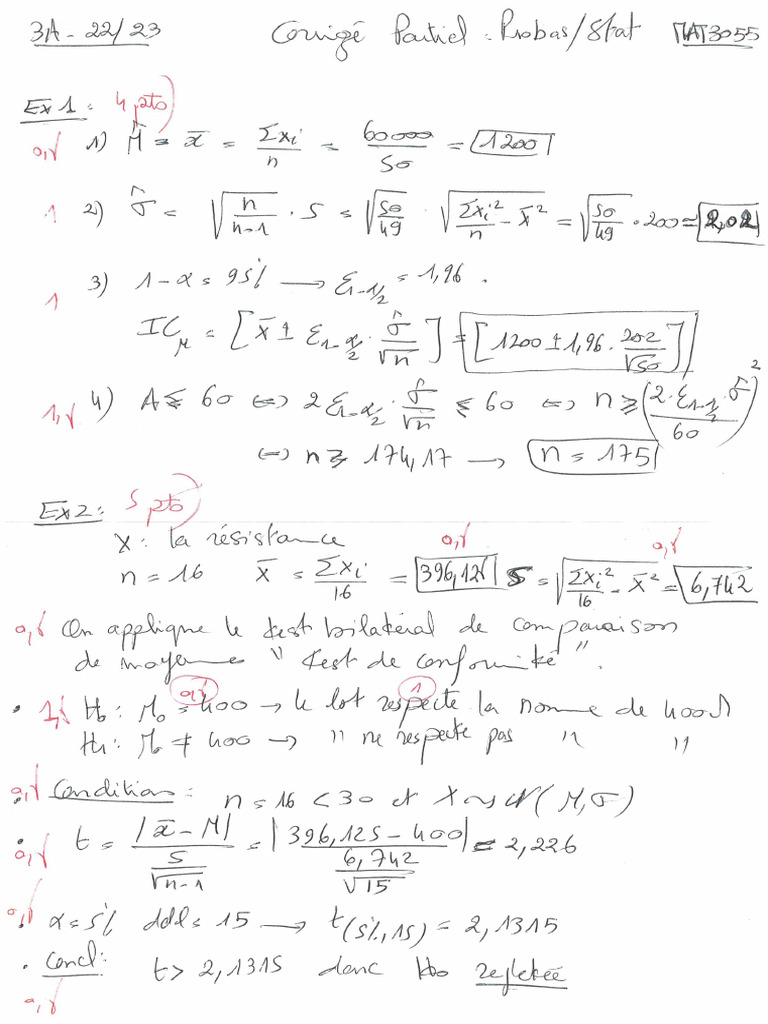 3A - 22/23 Corrigé Partiel : Probas/Stat MAT3055
Ex 1 : 4 pts
0,5 1) M̂ = x̄ = Σxi/n = 60000/50 = 1200
1 2) σ̂ = √(n/(n-1)) · S = √(50/49) · √(Σxi²/n - x̄²) = √(50/49) · 200 =
1 3) 1-α = 95% → ε1-α/2 = 1,96.
ICμ = [x̄ ± ε1-α/2 · σ̂/√n] = [1200 ± 1,96 · 202/√50]
1,5 4) A ≤ 60 ⇔ 2 ε1-α/2 · σ̂/√n ≤ 60 ⇔ n ≥ (2·ε1-α/2·σ̂/60)²
⇔ n ≥ 174,17 → n = 175
Ex 2 : 5 pts
X : la résistance
0,5 0,5
n = 16 x̄ = Σxi/16 = 396,125 S = √(Σxi²/16 - x̄²) = 6,742
0,5 On applique le test bilatéral de comparaison
de moyenne "test de conformité".
0,5 1
• 1,5 H0 : M0 = 400 → le lot respecte la norme de 400
H1 : M0 ≠ 400 → " ne respecte pas " "
0,5 Condition : n = 16 < 30 et X ~ N(M,σ)
• 0,5 t = |x̄ - M|/(S/√(n-1)) = |396,125 - 400|/(6,742/√15) = 2,226
0,5 • α = 5% ddl = 15 → t(5%,15) = 2,1315
• Concl : t > 2,1315 donc H0 rejetée
0,5